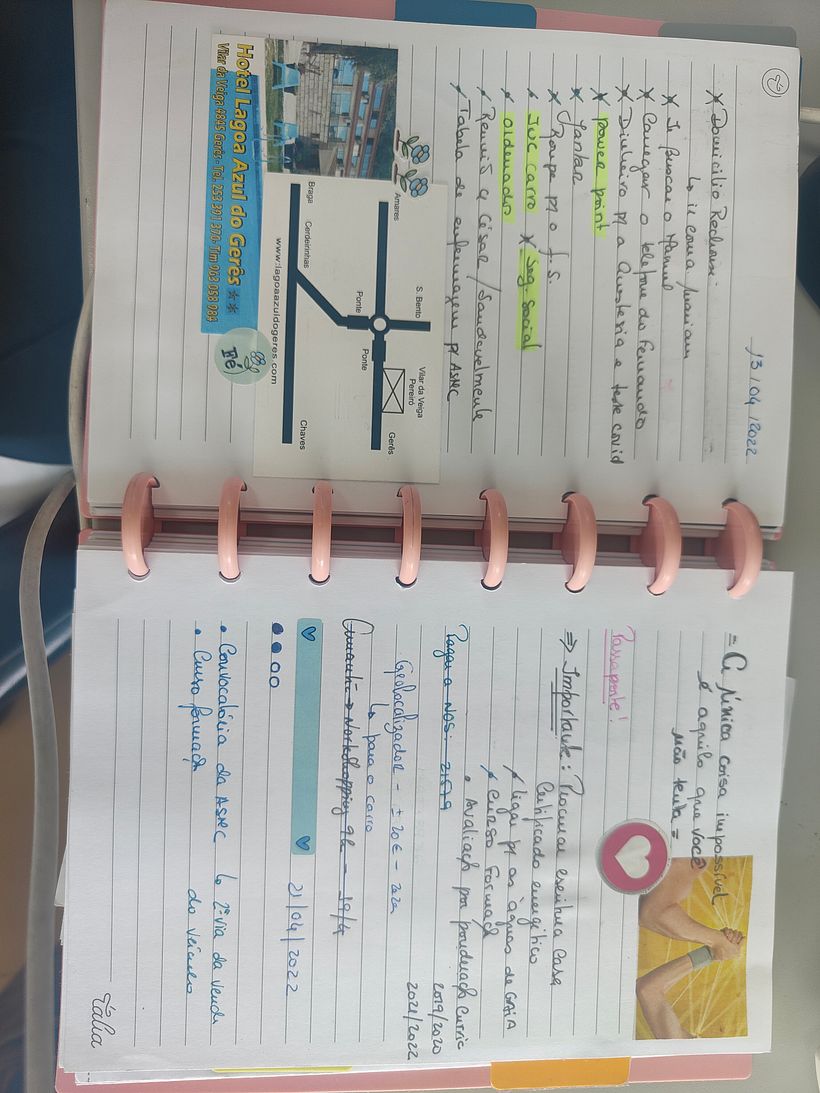 13/04/2022
* Domicílio Reclusão
↳ ir com a Mariam
* Ir buscar o Manuel
* Carregar o telefone do Fernando
* Dinheiro p/ a Anestesia e teste covid
* power point
* Jantar
* Roupa p/ o f.s.
* IUC carro * Seg. Social
* ordenados
Reunião c/ César / Sandra
Tabela de enfermagem p/ ASMC
Amares
S. Bento
Vilar da Veiga
Pereiró
Gerês
Ponte
Ponte
Braga
Cerdeirinhas
Chaves
www.lagoaazuldogeres.com
Hotel Lagoa Azul do Gerês **
Vilar da Veiga 4845 Gerês - Tel. 253 391 370 - Tlm 963 058 084
Fé
= A única coisa impossível
é aquilo que você
não tenta =
Passaporte!
⇒ Importante: Procurar escritura casa
Certificado energético
ligar p/ as águas de GAIA
Curso Formaçã
• Avaliação por ponderação Curric
2019/2020
2021/2022
Pagar a NOS: 21579
Geolocalizador - ± 20€ -
↳ para o carro
Amanhã → Norteshopping 9h - 19/4
21/04/2022
• Convocatória da ASMC
↳ 2ª via da venda
do veículo
• Curso formaçã
Itália